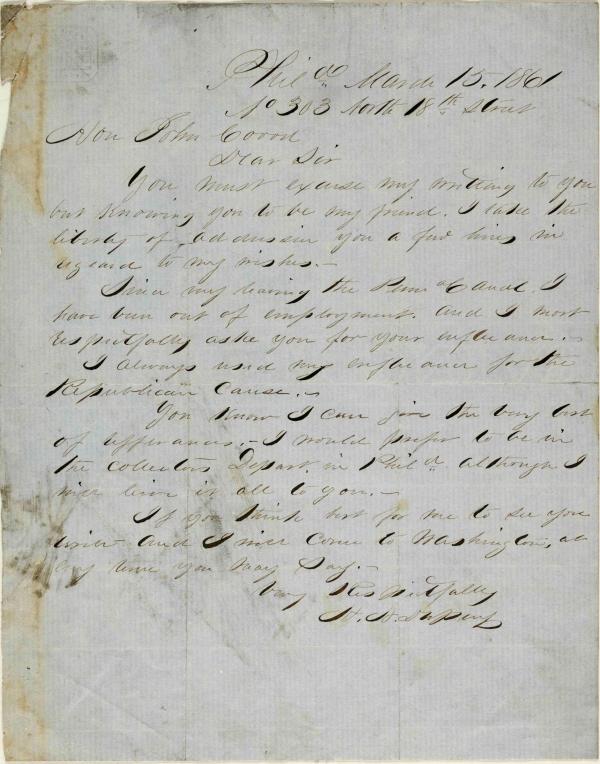 Phila March 15. 1861
No 303 North 18th Street
Hon John Covod
Dear Sir
You must excuse my writing to you
but knowing you to be my friend. I take the
liberty of addressin you a few lines in
regeard to my wishes.-
Since my leaving the Penna Canal. I
have been out of employment. and I most
respectfully aske you for your influence.-
I always used my influence for the
Republican Cause.-
You know I can give the very best
of refferances.- I would prefer to be in
the collectors Depart. in Phila. although I
will leave it all to you.-
If you think best for me to see you
and I will come to Washington, at
any time you may Say.-
Very Respectfully
H. H.